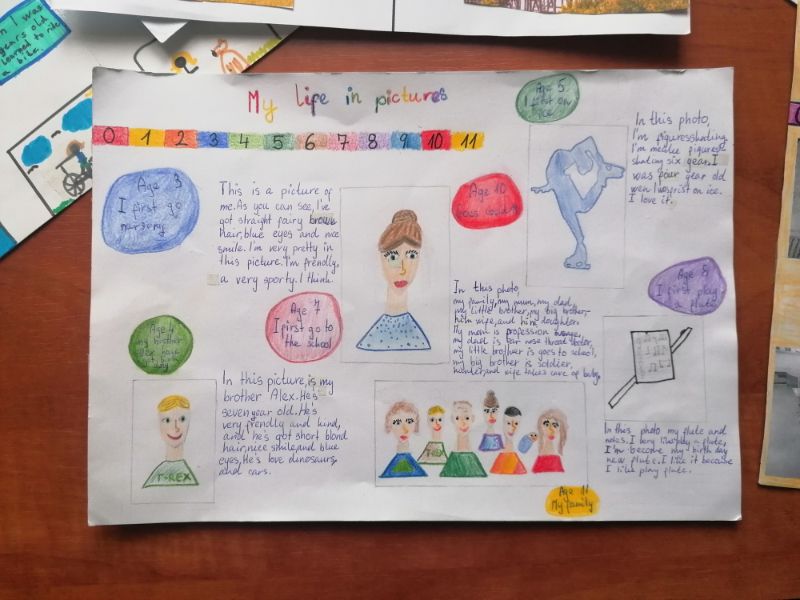 n I was
years old
learned to ride
a bike
My life in pictures
0 1 2 3 4 5 6 7 8 9 10 11
Age 5
I first on
ice
In this photo,
I'm
I'm
skating six year. I
was four year old
wen I was frist on ice.
I love it.
Age 3
I first go
nursery
This is a picture of
me. As you can see, I've
got straight fairy brown
hair, blue eyes and nice
smile. I'm very pretty in
this picture. I'm frendly,
a very sporty. I think.
Age 10
Age 8
I first play
a flute
Age 4
my brother
Age 7
I first go to
the school
In this photo,
my family, my mum, my dad,
my little brother, my big brother,
him wife, and him daughter.
My mom is profession
my dad is ear nose throat doctor,
my little brother is goes to school,
my big brother is soldier,
wife takes care of baby.
In this picture, is my
brother Alex. He's
seven year old. He's
very frendly and kind,
and he's got short blond
hair, nice smile, and blue
eyes. He's love dinosaurs,
and cars.
T-REX
T-REX
In this photo my flute and
notes. I very like play a flute,
I'm become my birth day
new flute. I like it because
I like play flute.
Age 11
My family